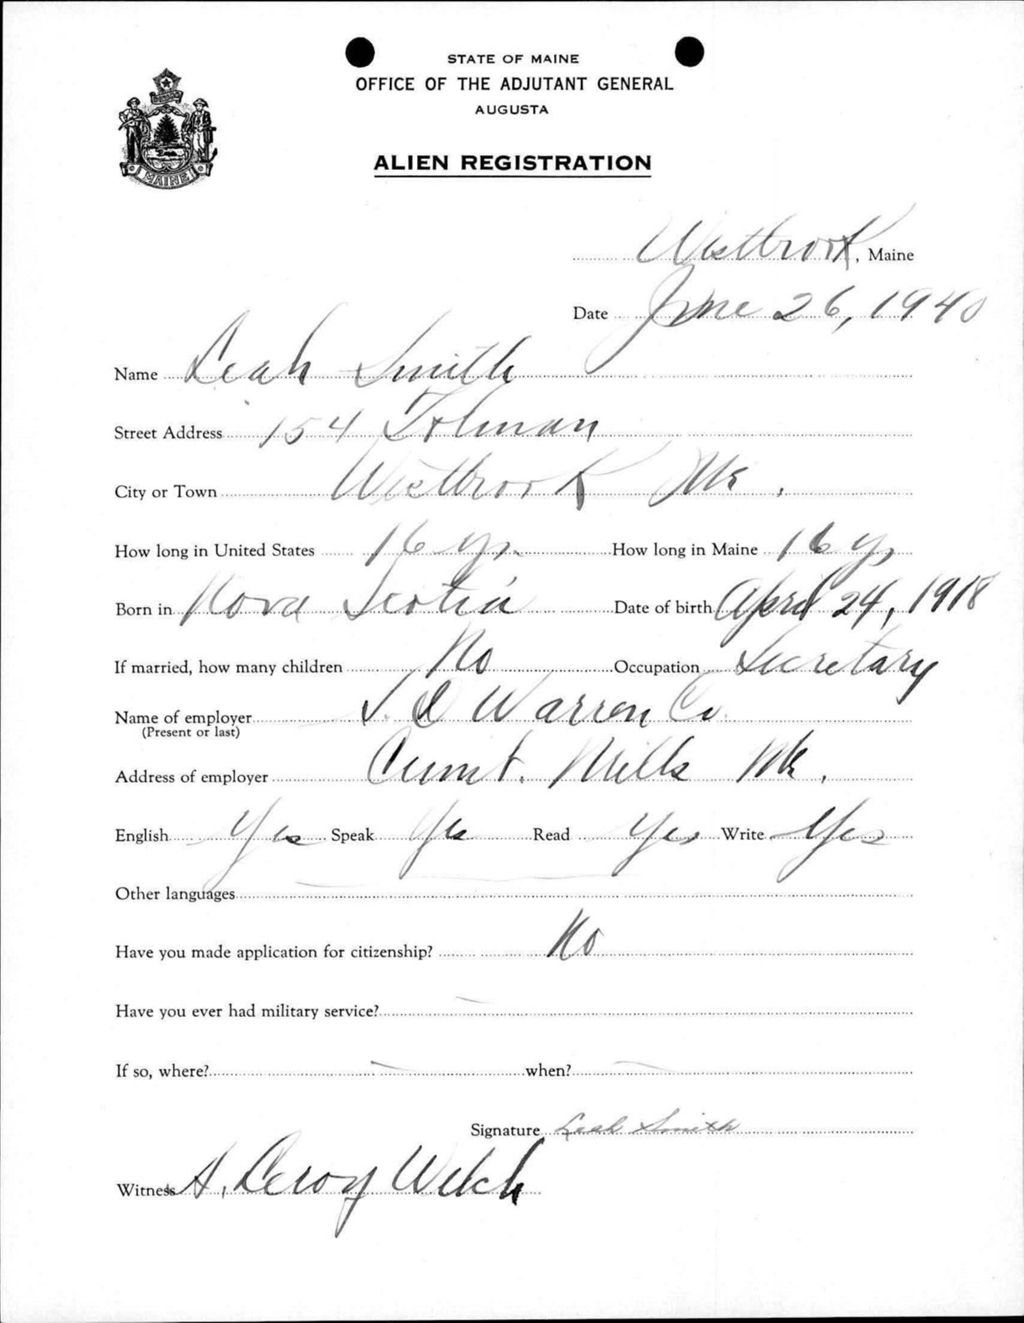 STATE OF MAINE
OFFICE OF THE ADJUTANT GENERAL
AUGUSTA
MAINE
ALIEN REGISTRATION
Westbrook, Maine
Date June 26, 1940
Name Leah Smith
Street Address 154 Tolman
City or Town Westbrook Me.
How long in United States 16 yrs. How long in Maine 16 yrs
Born in Nova Scotia Date of birth April 24, 1918
If married, how many children No Occupation Secretary
Name of employer S. D Warren Co.
(Present or last)
Address of employer Cumb. Mills Me.
English Yes Speak Yes Read Yes Write Yes
Other languages
Have you made application for citizenship? No
Have you ever had military service? —
If so, where? — when? —
Signature Leah Smith
Witness A. Leroy Welch